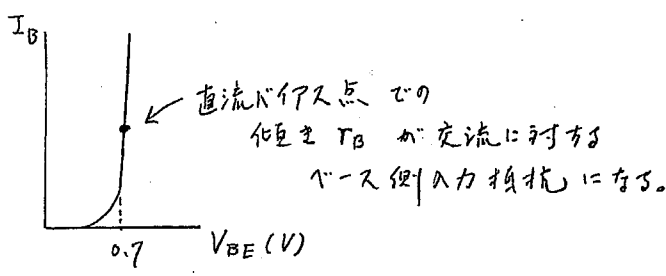 I_B
直流バイアス点での
傾き r_B が交流に対する
ベース側入力抵抗になる。
0.7
V_BE (V)